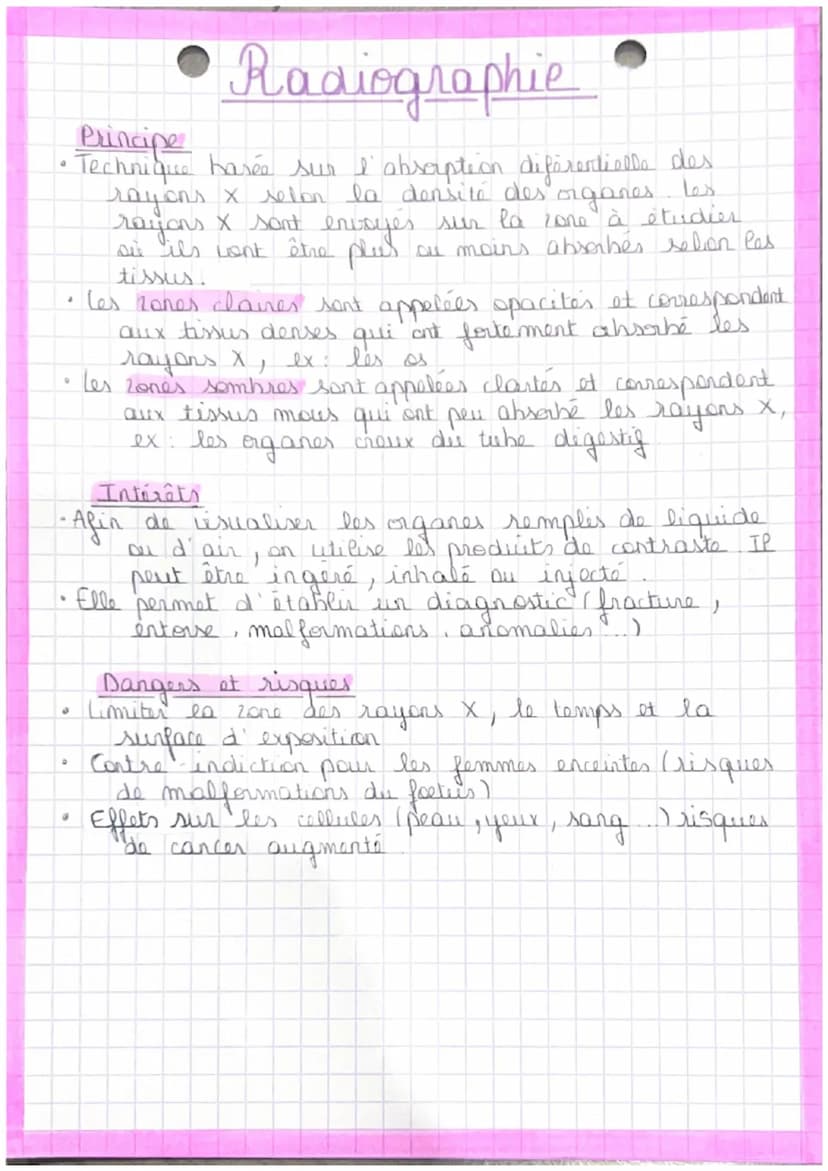 Radiographie
Principe
• Technique basée sur l'absorption diférentielle des
rayons X selon la densité des organes. Les
rayons X sont envoyés sur la zone à étudier
où ils vont être plus ou moins absorbés selon les
tissus.
• Les zones claires sont appelées opacités et correspondent
aux tissus denses qui ont fortement absorbé les
rayons X, ex : les os
• Les zones sombres sont appelées clartés et correspondent
aux tissus mous qui ont peu absorbé les rayons X,
ex : les organes creux du tube digestif
Intérêts
• Afin de visualiser les organes remplis de liquide
ou d'air, on utilise les produits de contraste. Il
peut être ingéré, inhalé ou injecté.
• Elle permet d'établir un diagnostic (fracture,
entorse, malformations, anomalies ...)
Dangers et risques
• Limiter la zone des rayons X, le temps et la
surface d'exposition
• Contre-indiction pour les femmes enceintes (risques
de malformations du foetus)
• Effets sur les cellules (peau, yeux, sang ...) risques
de cancer augmenté